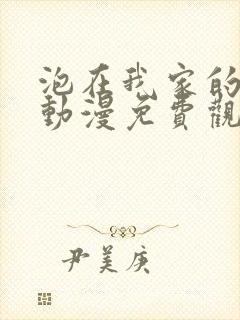 泡在我家的
動漫免費觀
尹美庚